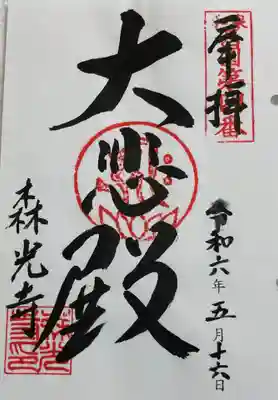 奉拝
令和六年五月十六日
大悲殿
森光寺